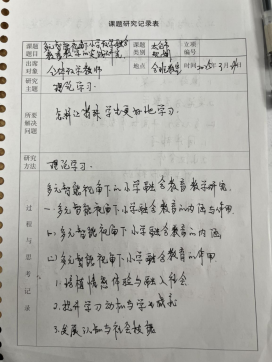 课题研究记录表
课题题目 多元智能视角下小学融合教育教学的实践研究 课题类别 立项编号
出席对象 全体数学教师 地点 会议室 时间
研究主题 理论学习.
所要解决问题 怎样让特殊学生更好地学习.
研究方法 理论学习.
过程与思考记录
多元智能视角下的小学融合教育教学研究.
一.多元智能视角下小学融合教育的内涵与作用
(一)多元智能视角下小学融合教育的内涵
(二)多元智能视角下小学融合教育的作用.
1.培植情感体验与融入社会
2.提升学习动机与学业成就
3.发展认知与社会技能